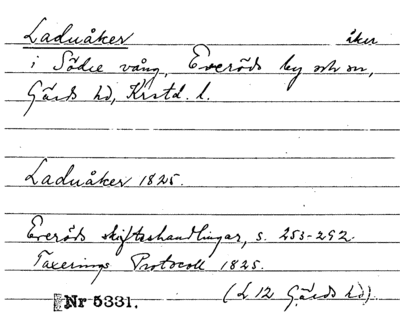 Laduåker åker
i Södre vång, Everöds by och sn,
Gärds hd, Krstd. l.
Laduåker 1825.
Everöds skifteshandlingar, s. 253-292.
Taxerings Protocoll 1825.
(L 12 Gärds hd).
Nr 5331.